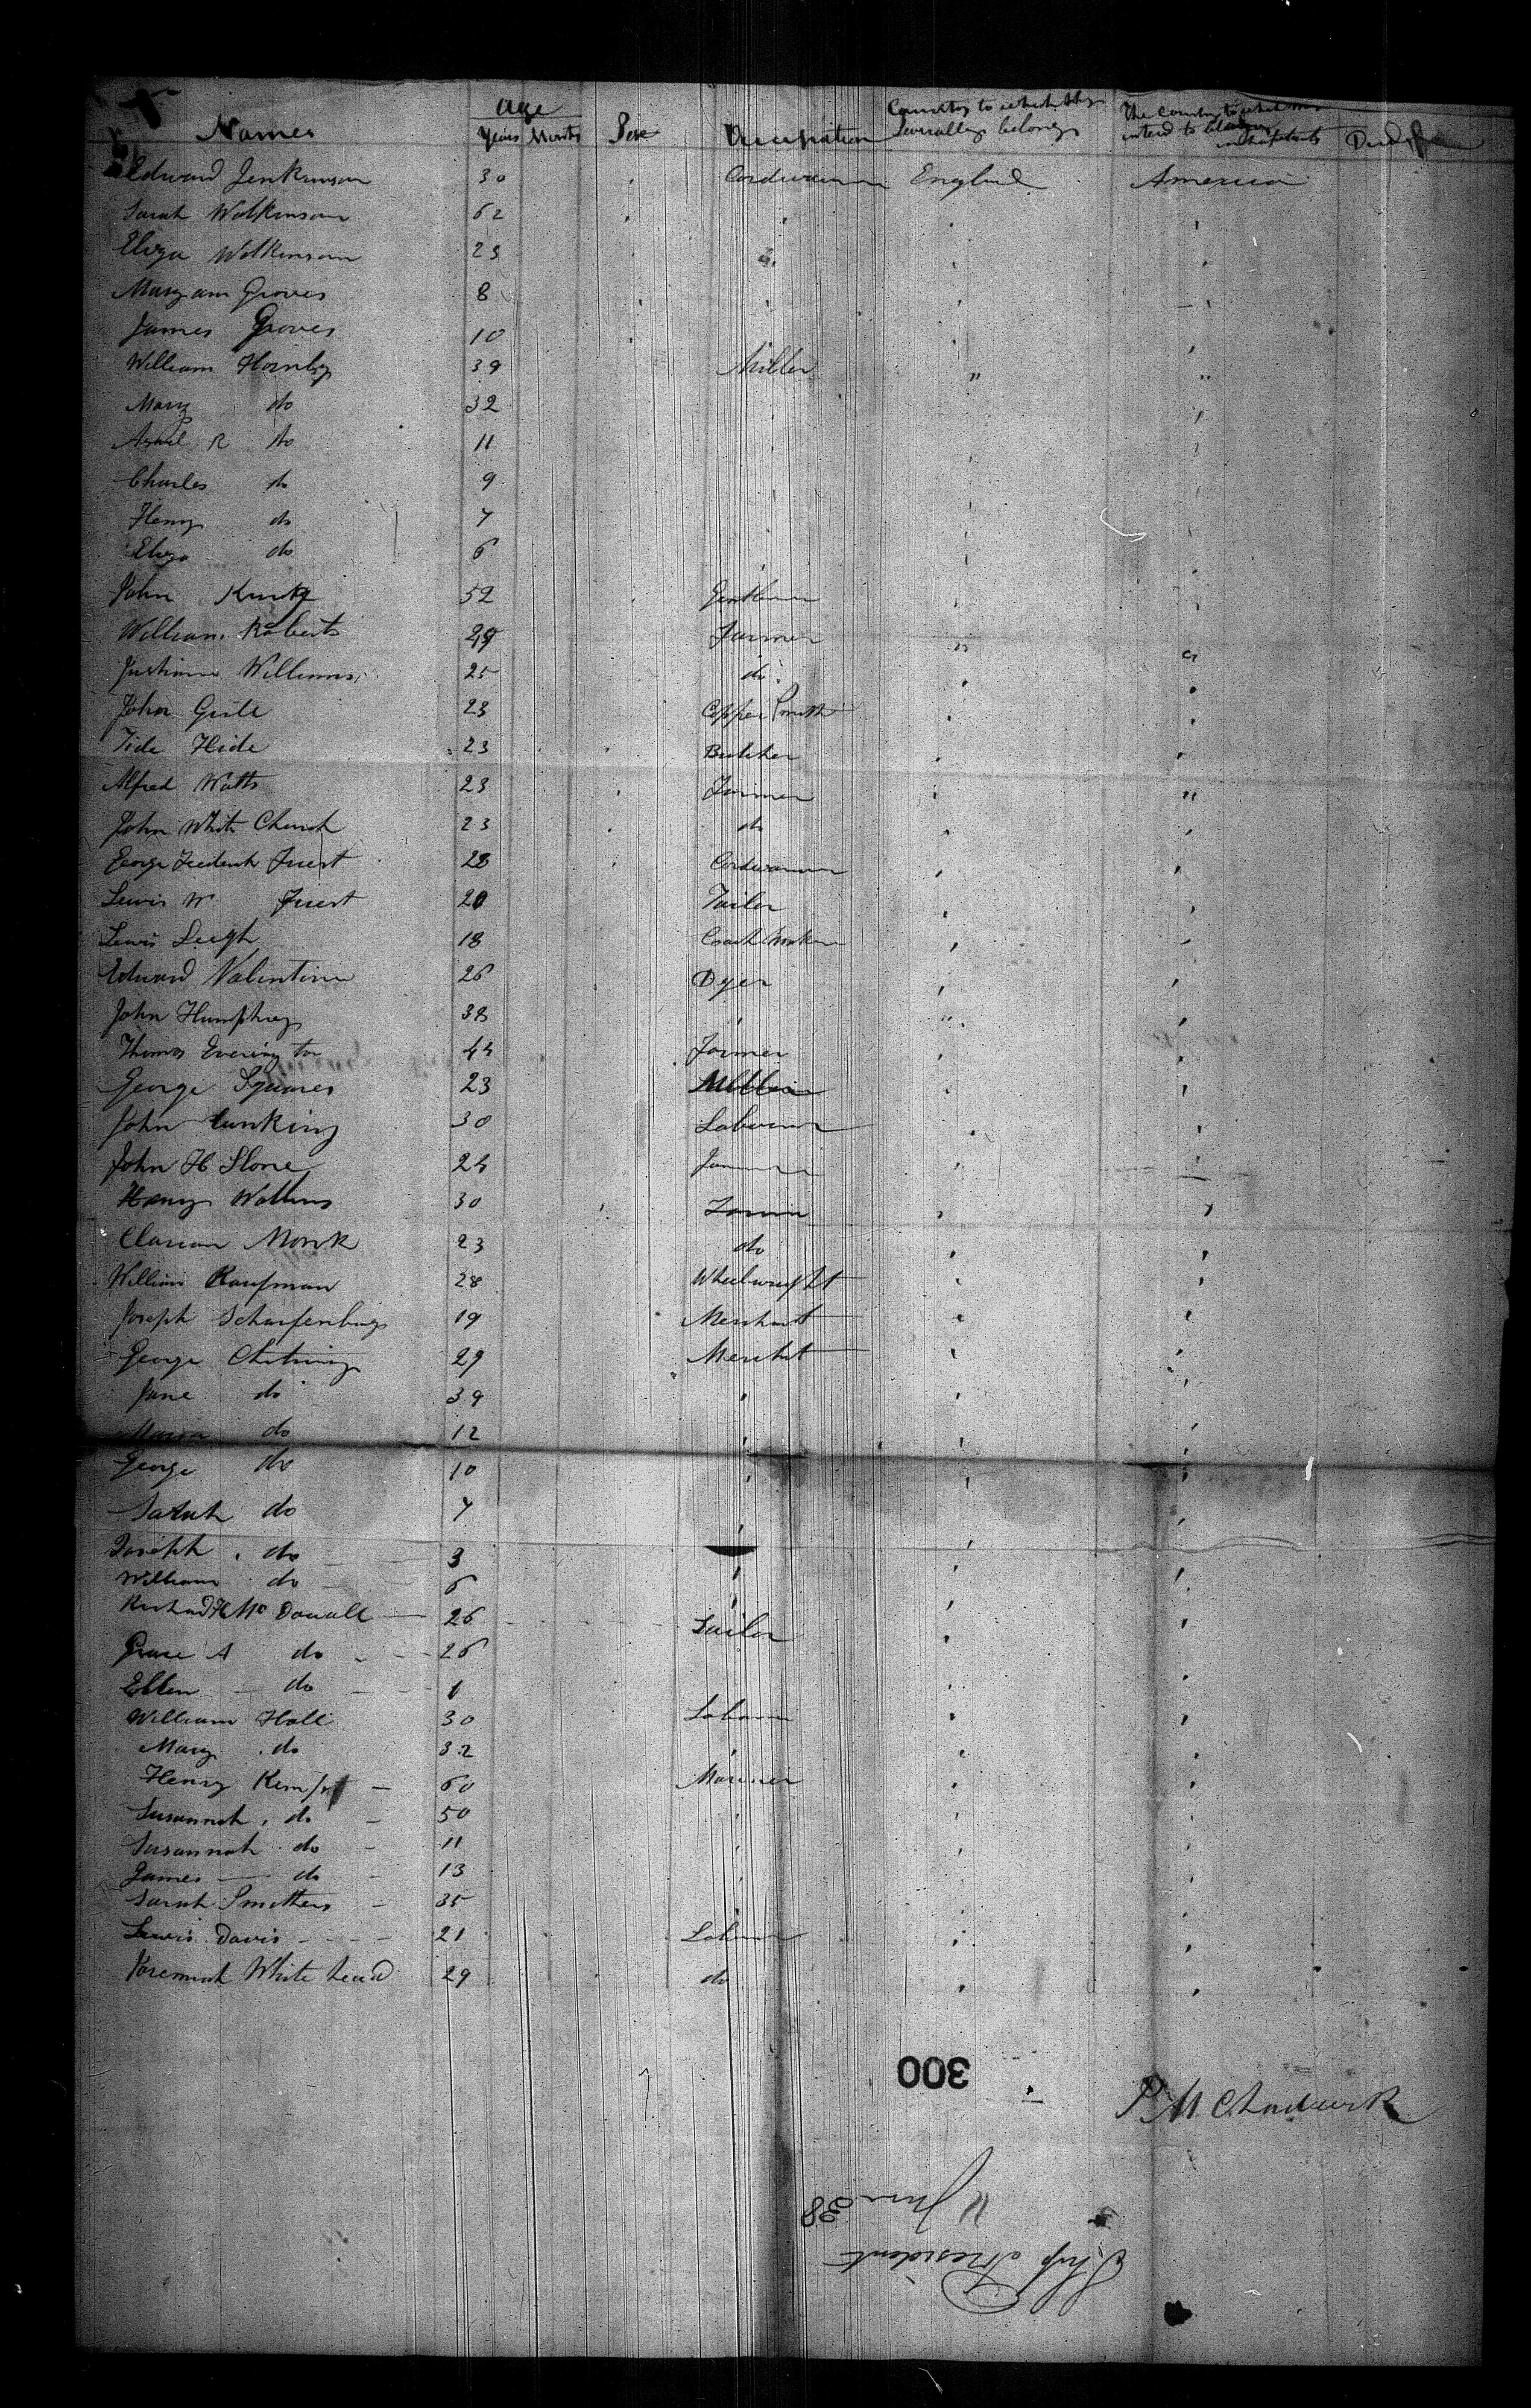 Names Age Years Months Sex Occupation Country to which they severally belong The Country to which they intend to become inhabitants Died
Edward Jenkinson 30 Cordwainer England America
Sarah Wilkinson 62
Eliza Wilkinson 23
Maryann Groves 8
James Groves 10
William Hornby 39 Miller " "
Mary do 32
R do 11
Charles do 9
Henry do 7
Eliza do 6
John 52 Gentleman
William Roberts 29 Farmer " "
Williams 25 do
John Gille 23 Copper Smith
Hide 23 Butcher
Alfred Watts 23 Farmer "
John White Church 23 do
George Frederick Furst 28 Cordwainer
Lewis W Furst 20 Tailor
Lewis Leigh 18 Coach Maker
Edward Valentine 26 Dyer
John Humphrey 38 "
Thomas Everington 44 Farmer
George Squares 23 Miller
John 30 Labourer
John H Slone 24
Henry Watkins 30
Monk 23 do
William Kaufman 28 Wheelwright
Joseph Scharfenburg 19 Merchant
George 29 Mercht
Jane do 39
Maria do 12
George do 10
Sarah do 7
Joseph do 3
William do 6
Richard H McDowall 26 Sailor
Grace A do 26
Ellen do 1
William Hall 30 Labourer
Mary do 32
Henry 60 Mariner
Susannah do 50
Susannah do 11
James do 13
Sarah Smithers 35
Lewis Davis 21 Labourer
White head 29 do
300
P M Chadwick
June 38
Ship President